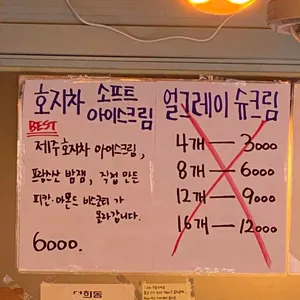 호지차 소프트
아이스크림
BEST
제주호지차 아이스크림,
프랑스산 밤잼, 직접 만든
피칸·아몬드 비스코티가
올라갑니다.
6000.
얼그레이 슈크림
4개 — 3000
8개 — 6000
12개 — 9000
16개 — 12000